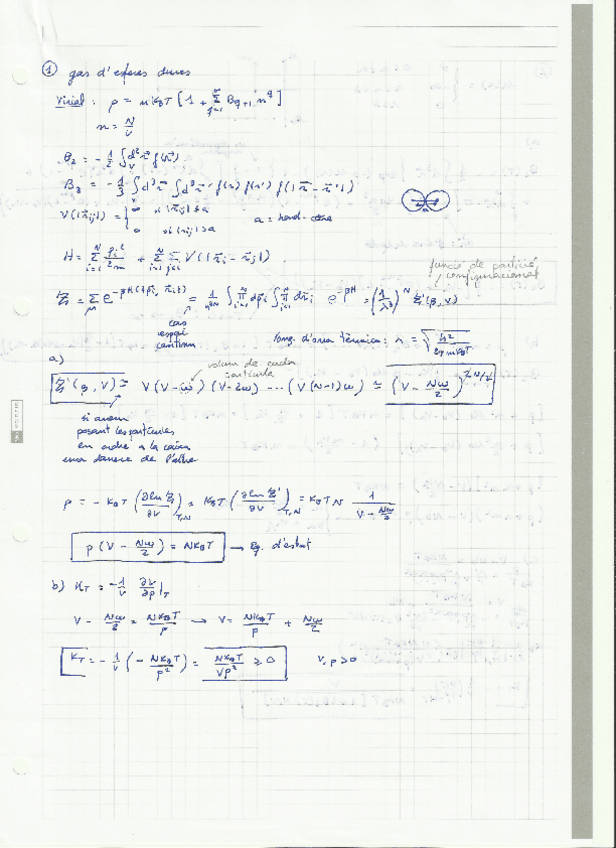 ① gas d'esferes dures
Virial : p = n k_B T [1 + Σ_{q=1}^{∞} B_{q+1} n^q]
n = N/V
B₂ = -1/2 ∫_V d³r f(r)
B₃ = -1/3 ∫ d³r ∫ d³r' f(r) f(r') f(|r - r'|)
V(|r_ij|) = { ∞ si |r_ij| ≤ a
0 si |r_ij| > a
a = hard-core
H = Σ_{i=1}^{N} p_i²/2m + Σ_{i=1}^{N} Σ_{j<i} V(|r_i - r_j|)
funció de partició configuracional
e^{-βH({p_i, r_i})} = 1/h^{3N} ∫ Π_{i=1}^{N} dp_i ∫ Π_{i=1}^{N} dr_i e^{-βH} = (1/λ³)^N Z'(β, V)
cas
espai
continu
long. d'ona tèrmica :
a)
volum de cada partícula
Z'(β, V) ≃ V(V-ω)(V-2ω) ... (V-(N-1)ω) ≃ (V - Nω/2)^N
si anem
posant les partícules
en ordre a la caixa
una darrere de l'altre
p = - k_B T (∂ln Z/∂V)_{T,N} = k_B T (∂ln Z'/∂V)_{T,N} = k_B T N 1/(V - Nω/2)
p (V - Nω/2) = N k_B T → Eq. d'estat
b) K_T = -1/V ∂V/∂p|_T
V - Nω/2 = N k_B T/p → V = N k_B T/p + Nω/2
K_T = -1/V (- N k_B T/p²) = N k_B T/(V p²) ≥ 0 V, p > 0